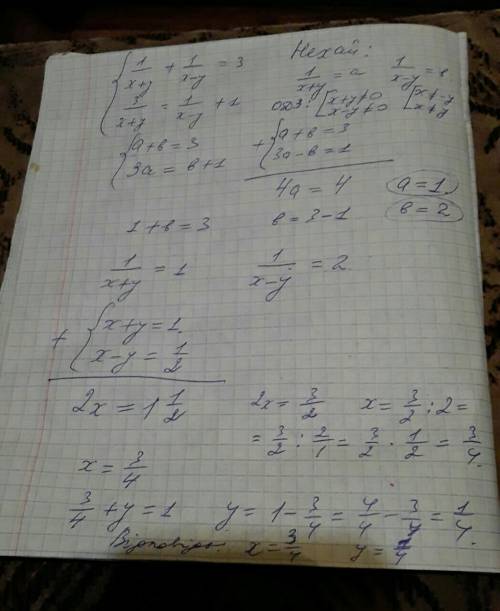 { 1/(x+y) + 1/(x-y) = 3
3/(x+y) = 1/(x-y) + 1
Нехай:
1/(x+y) = a 1/(x-y) = в
ОДЗ: [ x+y≠0 [ x≠-y
x-y≠0 x≠y
{ a+в = 3
3a = в+1
+ { a+в = 3
3a-в = 1
4a = 4 a=1
1+в = 3 в = 3-1 в = 2
1/(x+y) = 1 1/(x-y) = 2
+ { x+y = 1
x-y = 1/2
2x = 1 1/2 2x = 3/2 x = 3/2 : 2 =
= 3/2 : 2/1 = 3/2 · 1/2 = 3/4.
x = 3/4
3/4 + y = 1 y = 1 - 3/4 = 4/4 - 3/4 = 1/4.
Відповідь: x = 3/4 y =